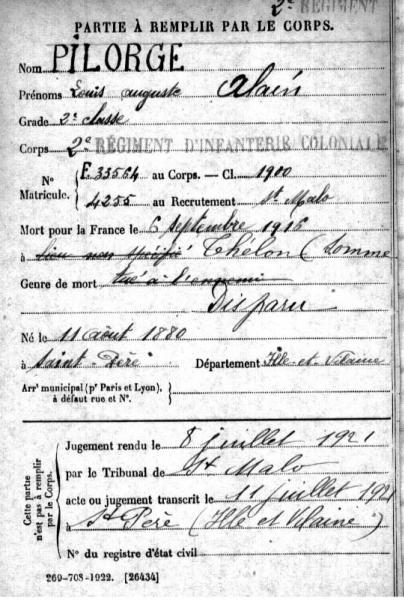 2e RÉGIMENT
PARTIE À REMPLIR PAR LE CORPS.
Nom PILORGE
Prénoms Louis auguste Alain
Grade 2e classe
Corps 2e RÉGIMENT D'INFANTERIE COLONIALE
N° Matricule. { E. 33564 au Corps. — Cl. 1900
4255 au Recrutement St Malo
Mort pour la France le 6 septembre 1916
à lieu non spécifié Chélon (Somme
Genre de mort tué à l'ennemi
Disparu
Né le 11 août 1880
à Saint-Père Département Ille-et-Vilaine
Arrt municipal (pr Paris et Lyon),
à défaut rue et N°.
Cette partie n'est pas à remplir par le Corps.
Jugement rendu le 8 juillet 1921
par le Tribunal de St Malo
acte ou jugement transcrit le 11 juillet 1921
à St Père (Ille et Vilaine)
N° du registre d'état civil
269-708-1922. [26434]